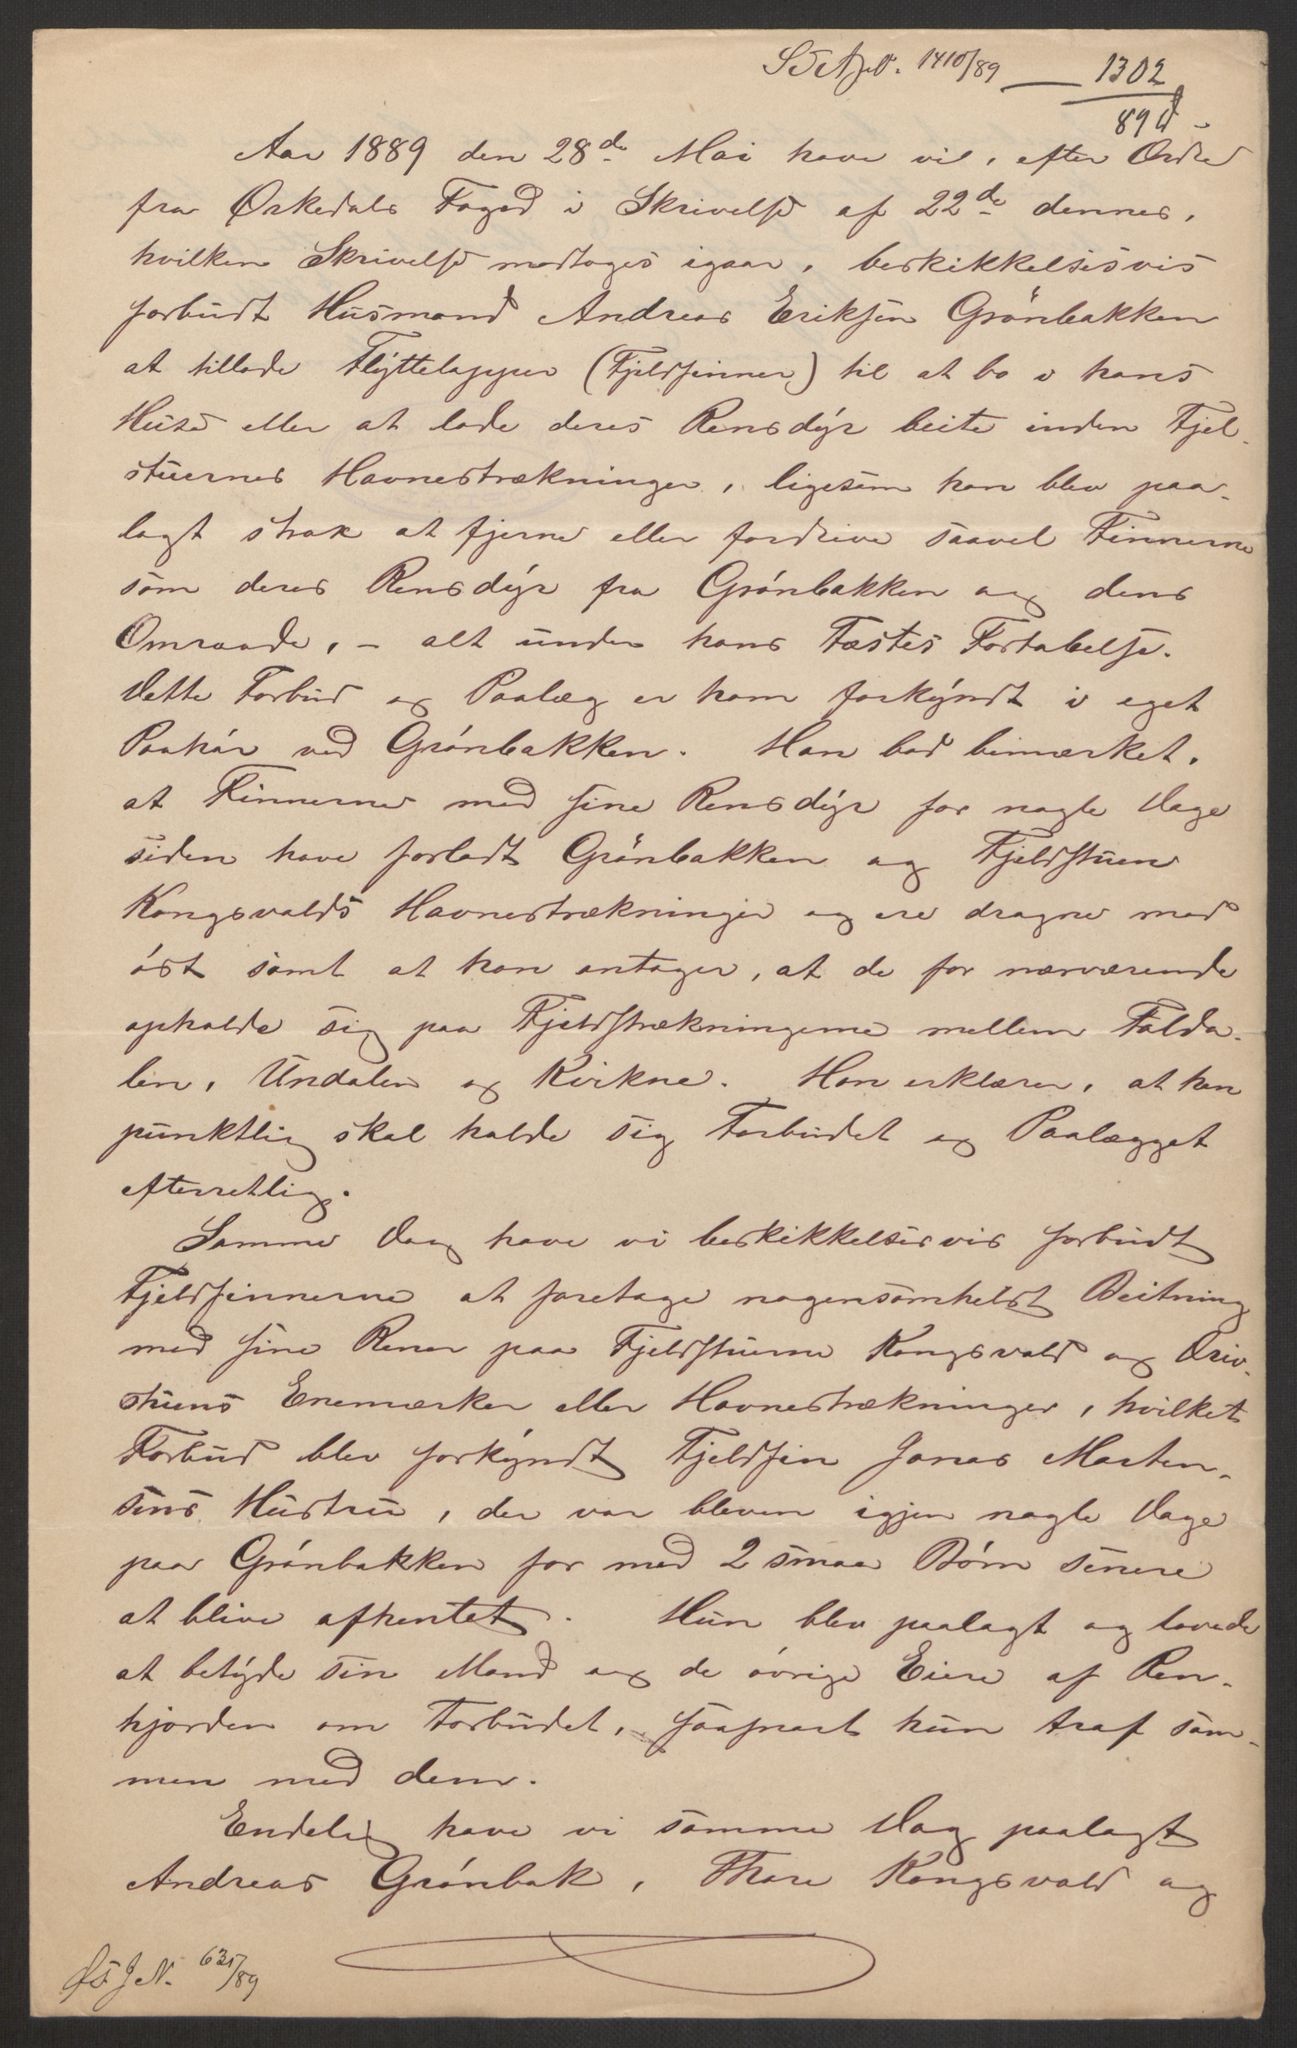 1410/89 — 1302
89 d
Aar 1889 den 28de Mai have vi, efter Ordre
fra Orkedals Foged i Skrivelse af 22de dennes,
hvilken Skrivelse modtoges igaar, beskikkelsesvis
forbudt Husmand Andreas Eriksen Grönbakken
at tillade Flyttelapper (Fjeldfinner) til at bo i hans
Huse eller at lade deres Rensdyr beite inden Fjel-
stuernes Havnestrækninger, ligesom han blev paa-
lagt strax at fjerne eller fordrive saavel Finnerne
som deres Rensdyr fra Grönbakken og dens
Omraade, - alt under hans Fæstes Fortabelse.
Dette Forbud og Paalæg er ham forkyndt i eget
Paahör ved Grönbakken. Han bad bemærket,
at Finnerne med sine Rensdyr for nogle Dage
siden have forladt Grönbakken og Fjeldstuen
Kongsvolds Havnestrækninger og ere dragne mod
öst samt at han antager, at de for nærværende
opholde sig paa Fjeldstrækningerne mellem Folda-
len, Undalen og Kvikne. Han erklærer, at han
punktlig skal holde sig Forbudet og Paalægget
efterretlig.
Samme Dag have vi beskikkelsesvis forbudt
Fjeldfinnerne at foretage nogensomhelst Beitning
med sine Rener paa Fjeldstuerne Kongsvold og Driv-
stuens Enemærker eller Havnestrækninger, hvilket
Forbud blev forkyndt Fjeldfin Jonas Morten-
sens Hustru, der var bleven igjen nogle Dage
paa Grönbakken for med 2 smaa Börn senere
at blive afhentet. Hun blev paalagt og lovede
at betyde sin Mand og de övrige Eiere af Ren-
hjorden om Forbudet, saasnart hun traf sam-
men med dem.
Endelig have vi samme Dag paalagt
Andreas Grönbak, Thore Kongsvold og
J.N. 635/89